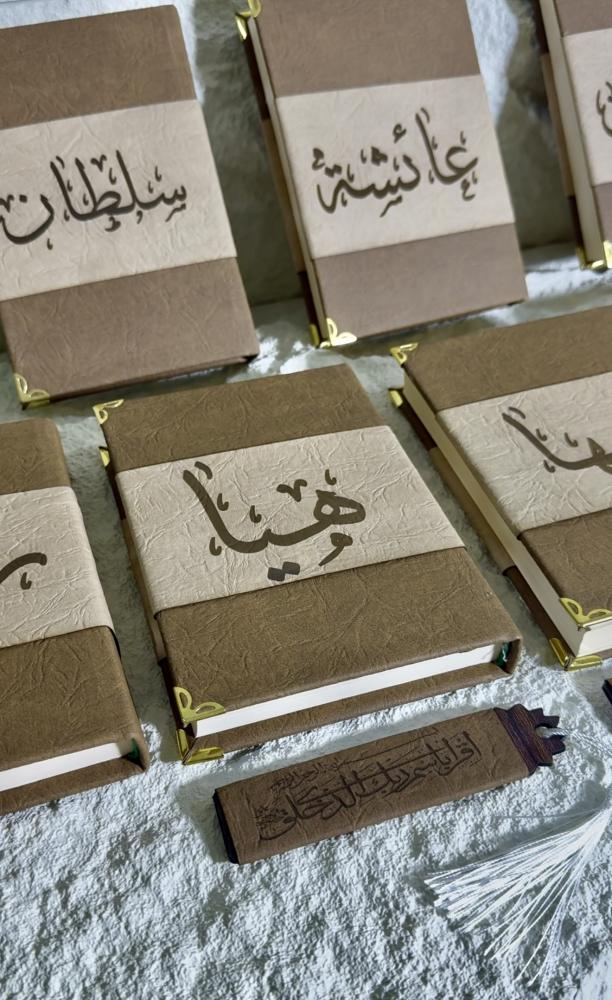 سلطان
عائشة
هيا
اقرأ باسم ربك الذي خلق